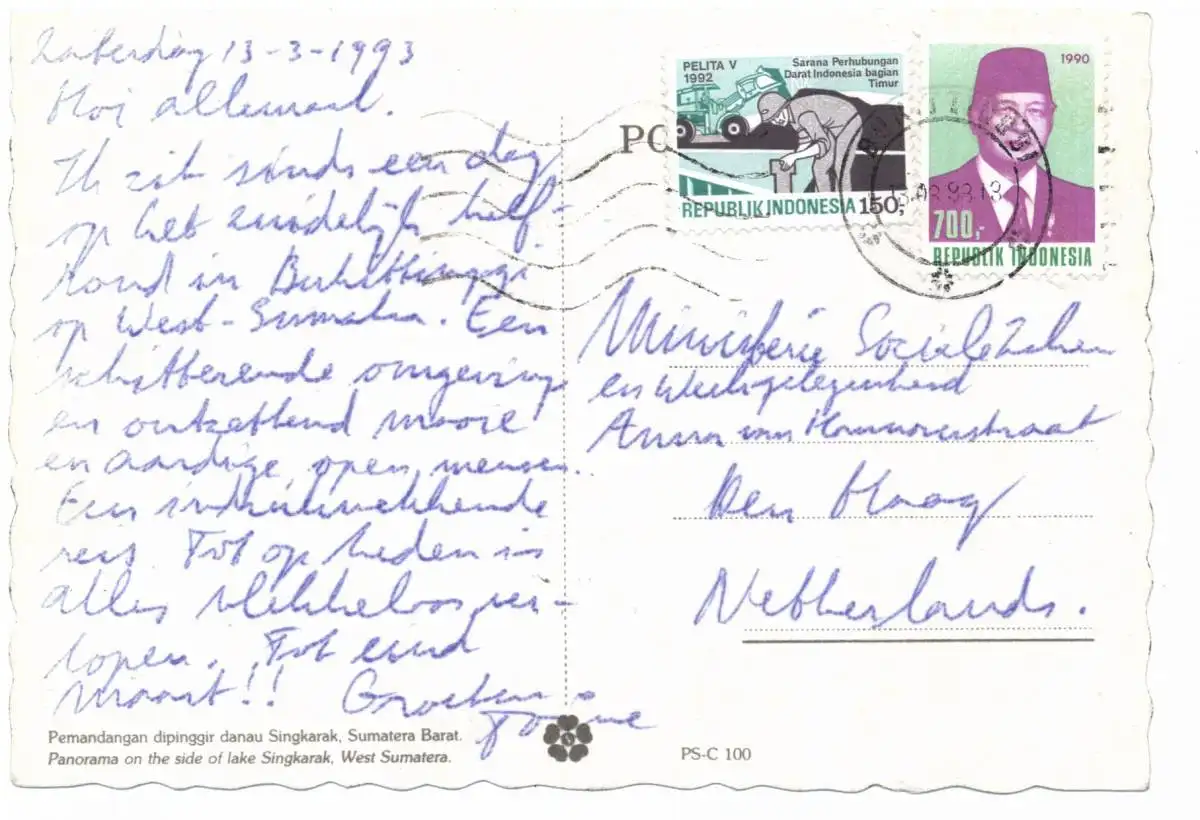 Zaterdag 13-3-1993
Hoi allemaal.
Ik zit sinds een dag
op het zuidelijk half-
rond in Bukittinggi
op West-Sumatra. Een
schitterende omgeving
en ontzettend mooie
en aardige, open, mensen.
Een indrukwekkende
reis. Tot op heden is
alles vlekkeloos ver-
lopen. Tot eind
maart!! Groeten,
Pemandangan dipinggir danau Singkarak, Sumatera Barat.
Panorama on the side of lake Singkarak, West Sumatera.
PELITA V
1992
Sarana Perhubungan
Darat Indonesia bagian
Timur
REPUBLIK INDONESIA 150,-
1990
700,-
REPUBLIK INDONESIA
PO
Ministerie Sociale Zaken
en Werkgelegenheid
Anna van Hannoverstraat
Den Haag
Netherlands.
PS-C 100